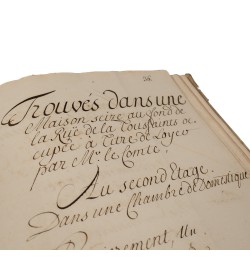 Trouvés dans une
Maison size au fond de
la Rüe de la Toussaints oc-
cupée à titre de Loyer
par Mr. le Comte.
Au second Etage.
Dans une Chambre de Domestique
un